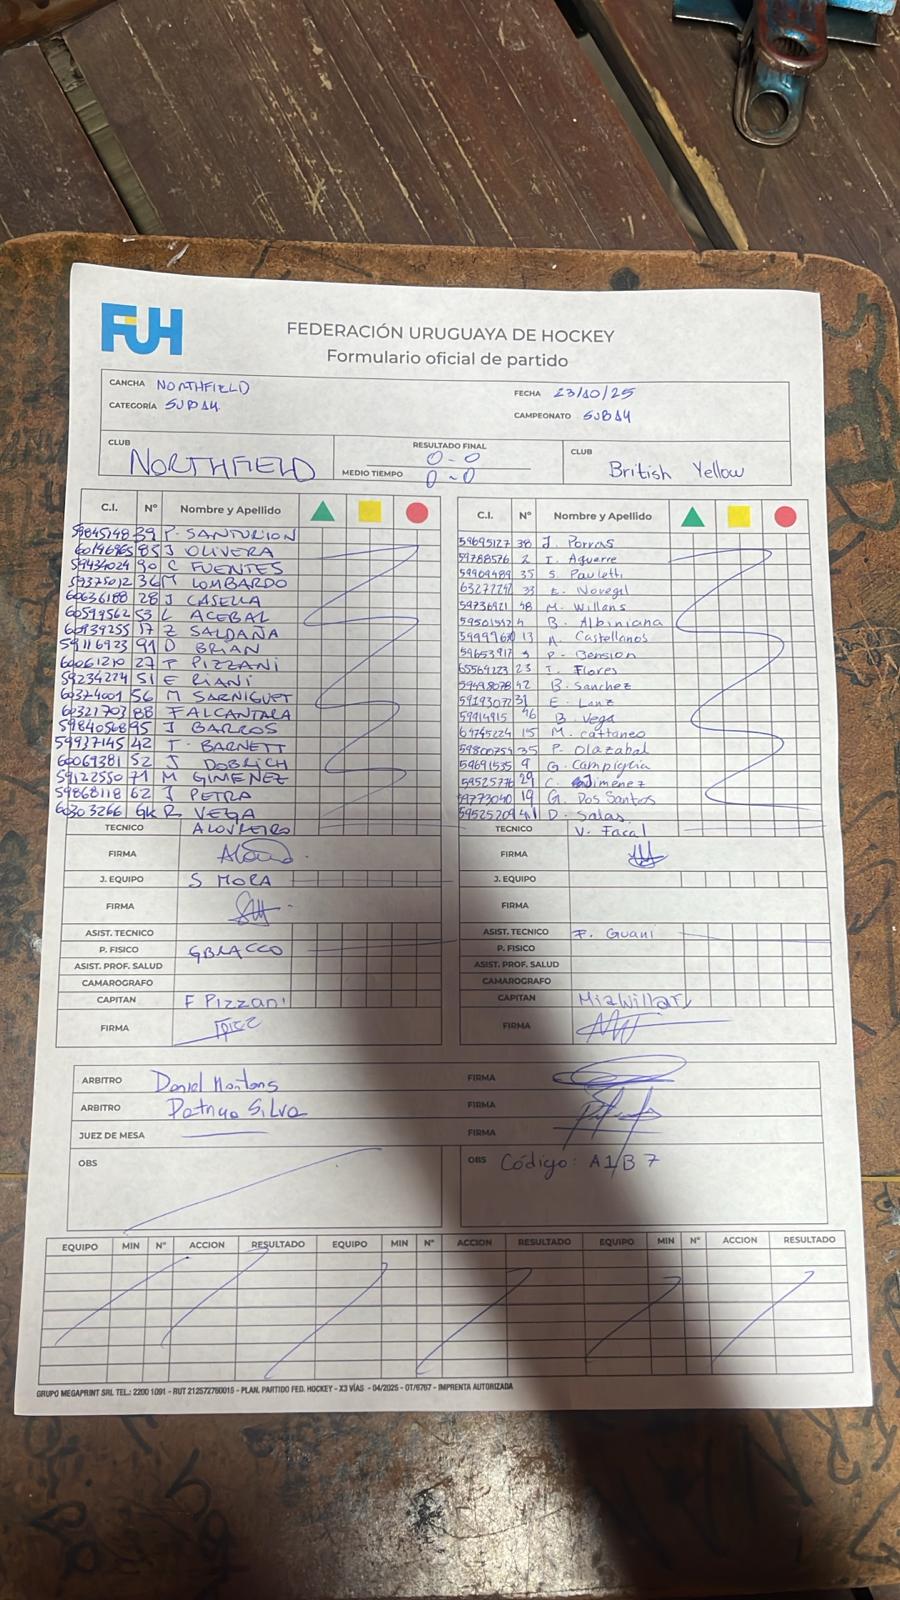 FUH
FEDERACIÓN URUGUAYA DE HOCKEY
Formulario oficial de partido
CANCHA NORTHFIELD
FECHA 23/10/25
CATEGORÍA SUB14
CAMPEONATO SUB14
CLUB NORTHFIELD
RESULTADO FINAL 0-0
MEDIO TIEMPO 0-0
CLUB British Yellow
C.I. Nº Nombre y Apellido
59845748 39 P. SANTURION
60196965 85 J OLIVERA
59434024 90 C FUENTES
59375012 36 M LOMBARDO
60636188 28 J CASELLA
60599562 53 L ACEBAL
60939255 17 Z SALDAÑA
59116923 91 D BRIAN
60061210 27 F PIZZANI
59234224 51 E RIANI
60374001 56 M SARNIGUET
60321703 88 F ALCANTARA
59840568 95 J BARROS
59937145 42 T. BARNETT
60069381 52 J DOBRICH
59122550 71 M GIMENEZ
59868118 62 J PETRA
60303266 GK R VEGA
TECNICO
FIRMA
J. EQUIPO S MORA
FIRMA
ASIST. TECNICO
P. FISICO G BRACCO
ASIST. PROF. SALUD
CAMAROGRAFO
CAPITAN F Pizzani
FIRMA
C.I. Nº Nombre y Apellido
59695127 38 J. Porras
59788576 2 I. Aguerre
59904489 35 S. Pauletti
33 E. Novegil
59736921 48 M. Willans
4 B. Albiniana
13 A. Castellanos
59653917 P. Bension
23 I. Flores
59498078 42 B. Sanchez
31 E. Lanz
59914915 46 B. Vega
15 M. Cattaneo
59800754 35 P. Olazabal
59691535 9 G. Campiglia
29 C. Jimenez
59773040 19 G. Dos Santos
59525209 D. Salas
TECNICO V. Facal
FIRMA
J. EQUIPO
FIRMA
ASIST. TECNICO F. Guani
P. FISICO
ASIST. PROF. SALUD
CAMAROGRAFO
CAPITAN
FIRMA
ARBITRO Daniel Montans FIRMA
ARBITRO Patricia Silva FIRMA
JUEZ DE MESA FIRMA
OBS
OBS Código: A1/B7
EQUIPO MIN Nº ACCION RESULTADO EQUIPO MIN Nº ACCION RESULTADO EQUIPO MIN Nº ACCION RESULTADO
GRUPO MEGAPRINT SRL TEL.: 2200 1091 - RUT 212572760015 - PLAN. PARTIDO FED. HOCKEY - X3 VÍAS - 04/2025 - OT/6767 - IMPRENTA AUTORIZADA